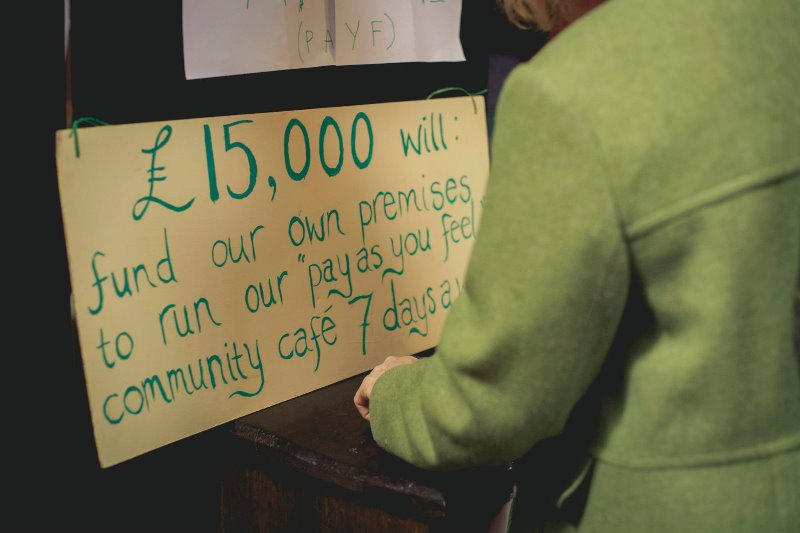 (PAYF)
£15,000 will:
fund our own premises
to run our "pay as you feel"
community café 7 days a